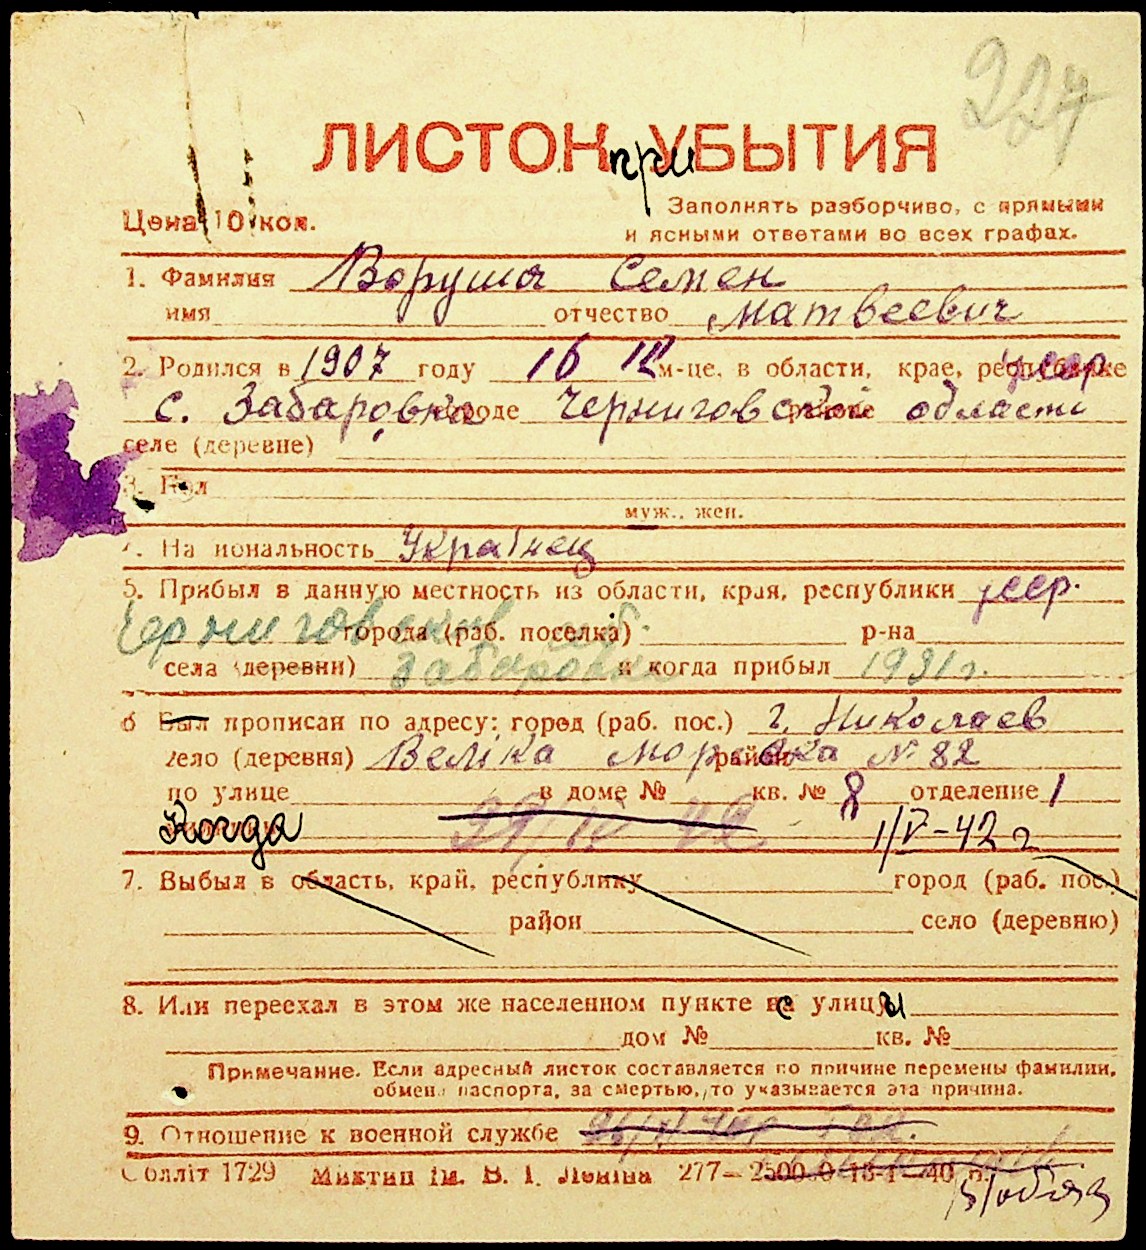 227
ЛИСТОК при УБЫТИЯ
Цена 10 коп.
Заполнять разборчиво, с прямыми
и ясными ответами во всех графах.
1. Фамилия Воруша Семен
имя отчество Матвеевич
2. Родился в 1907 году 16 12 м-це, в области, крае, республике усср
с. Забаровка городе Черниговской районе области
селе (деревне)
3. Пол
муж., жен.
4. Национальность Українец
5. Прибыл в данную местность из области, края, республики усср.
Черниговской города (раб. поселка) обл. р-на
села (деревни) Забаровка и когда прибыл 1931 г.
6 Был прописан по адресу: город (раб. пос.) г. Николаев
село (деревня) Веліка морская район № 82
по улице в доме № кв. № 8 отделение 1
Когда 29/IV 42 1/V-42 г
7. Выбыл в область, край, республику город (раб. пос.)
район село (деревню)
8. Или переехал в этом же населенном пункте с улицы
дом № кв. №
Примечание. Если адресный листок составляется по причине перемены фамилии,
обмена паспорта, за смертью, то указывается эта причина.
9. Отношение к военной службе
Соллiт 1729 Миктип iм. В. I. Ленiна 277—2500.0 13-I—40 р.